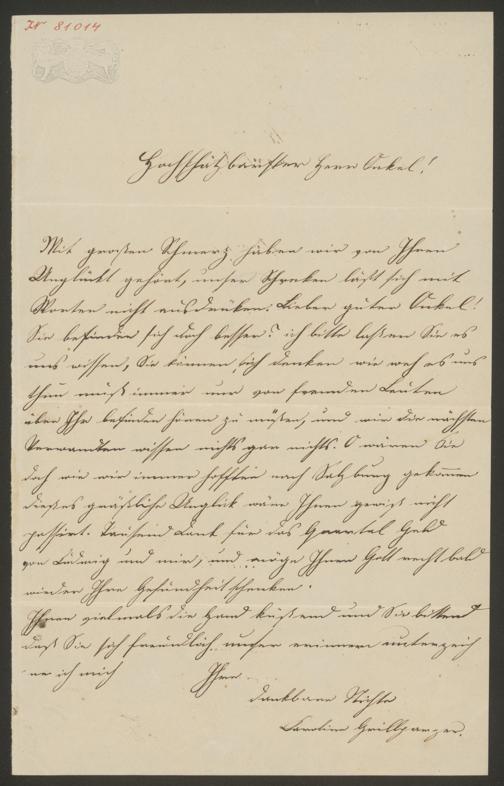 IN 81014
Hochschätzbarster Herr Onkel!
Mit großen Schmerz haben wir von Ihren
Unglükt gehört, unser Schreken läßt sich mit
Worten nicht ausdrüken. Lieber guter Onkel!
Sie befinden sich doch besser? ich bitte laßen Sie es
uns wissen, Sie können sich denken wie weh es uns
thun muß immer nur von fremden Leuten
über Ihr befinden hören zu müßen, und wir die nächsten
Verwandten wissen nichts gar nichts. O wären Sie
doch wie wir immer hofften nach Salzburg gekommen
dießes gräßliche Unglük wäre Ihnen gewiß nicht
passirt. Tausend Dank für das Quartal Geld
von Ludwig und mir, und möge Ihnen Gott recht bald
wieder Ihre Gesundheit schenken.
Ihnen vielmals die Hand küßend und Sie bittend
daß Sie sich freundlich unser erinnern unterzeich
ne ich mich Ihre
dankbare Nichte
Caroline Grillparzer.